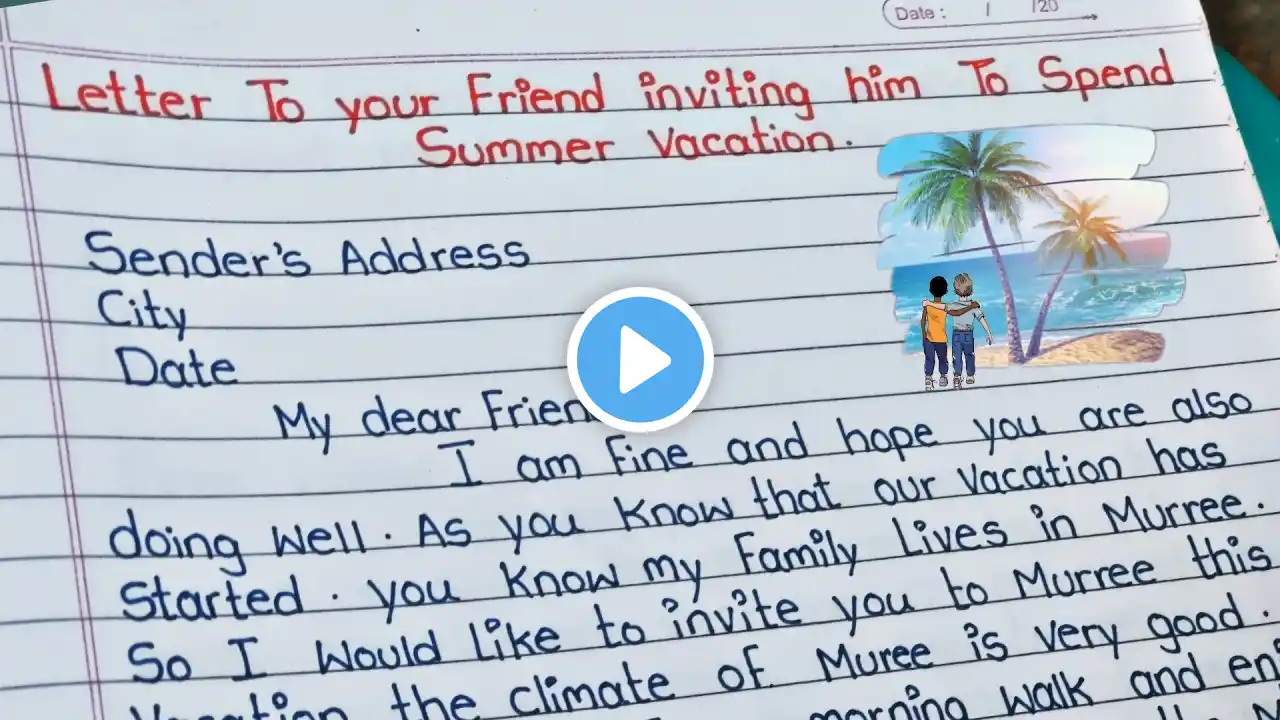 Date : / /20
Letter To your Friend inviting him To Spend
Summer Vacation.
Sender's Address
City
Date
My dear Frien
I am Fine and hope you are also
doing well. As you Know that our Vacation has
Started. you Know my Family Lives in Murree.
So I Would like to invite you to Murree this
the climate of Muree is very good.
morning walk and